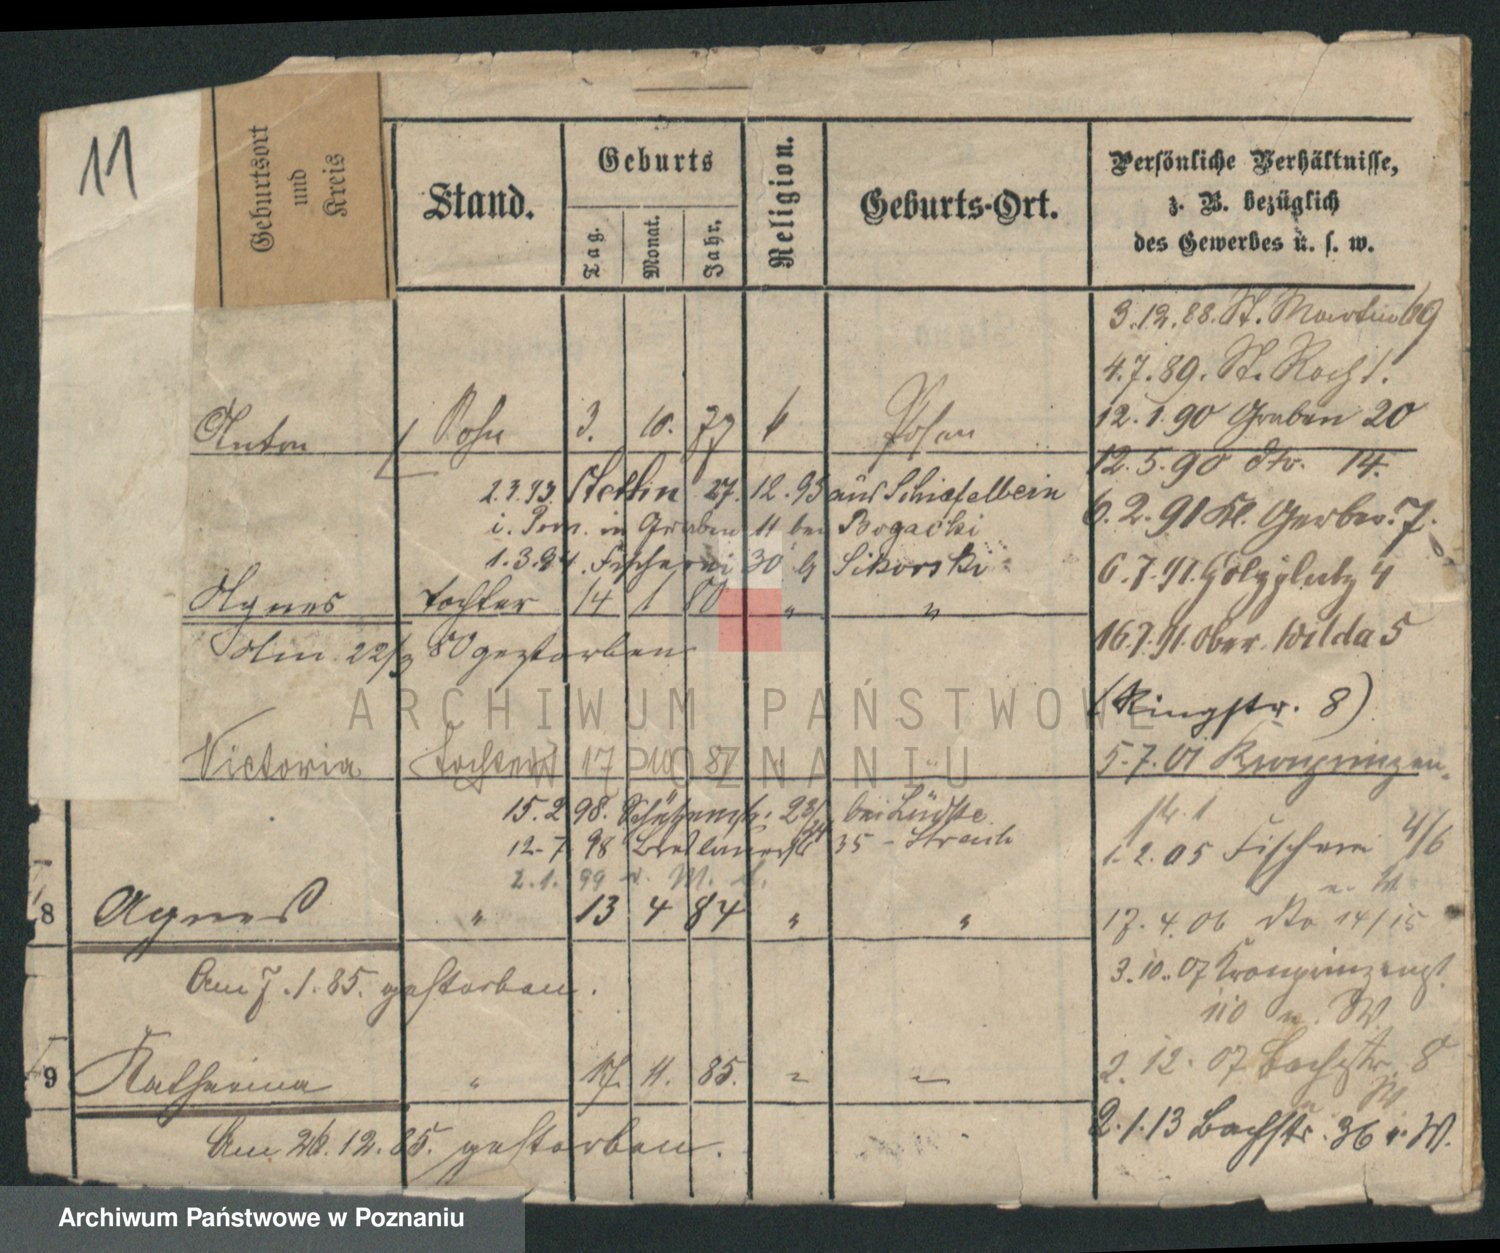 11
Geburtsort
und
Kreis
Stand.
Geburts
Tag.
Monat.
Jahr.
Religion.
Geburts-Ort.
Persönliche Verhältnisse,
z. B. bezüglich
des Gewerbes u. s. w.
3.12.88. St. Martin 69
4.7.89. St. Roch 1.
Anton Sohn 3. 10. 77 k Posen
12.1.90 Graben 20
12.5.90 dto. 14.
2.3.93. Stettin 27.12.93 aus Schiefelbein
i. Pom. in Graben 11 bei Bogacki
6.2.91 Kl. Gerber. 7.
1.3.94. Fischerei 30 b Sikorski
6.7.91. 4
Agnes tochter 14 1 80 " "
Am 22/3 80 gestorben
16.7.91. Ober. Wilda 5
(Ringstr. 8)
Victoria tochter 17 10 81 " "
5.7.01 Kronprinzen-
str. 1
15.2.98. Schützenstr. 28/ bei Lüdtke
12.7.98 35 -
2.1.99 v. M.
1.2.05 Fischerei 4/6
n. W
8 Agnes " 13 4 84 " "
17.4.06 dto 14/15
Am 7.1.85. gestorben.
3.10.07 Kronprinzenst.
110 n. W.
9 Katharina " 17. 11. 85. " "
2.12.07 Bachstr. 8
n W
Am 26.12.85. gestorben.
2.1.13 Bachstr. 36 n. W.
ARCHIWUM PAŃSTWOWE
W POZNANIU
Archiwum Państwowe w Poznaniu